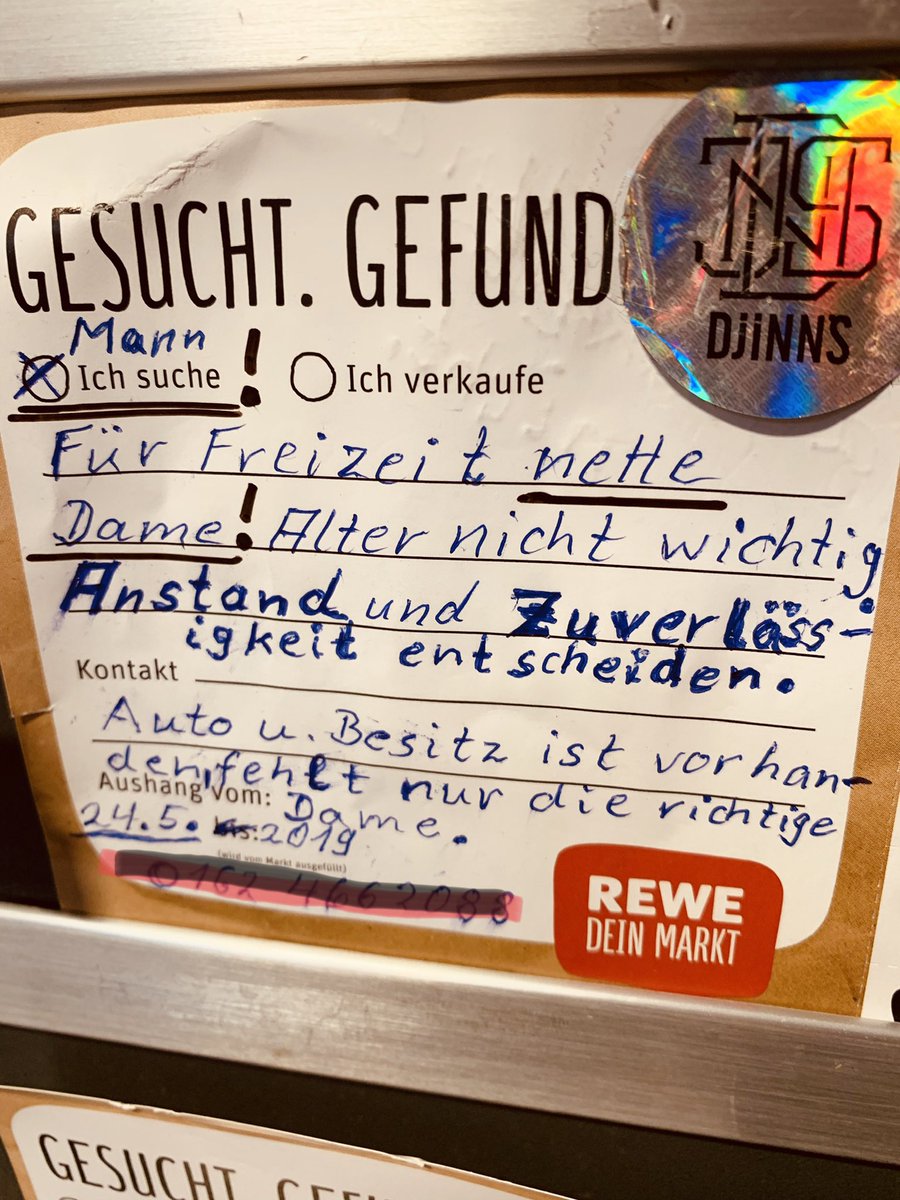 GESUCHT. GEFUND
DJiNNS
Mann
Ich suche ! Ich verkaufe
Für Freizeit nette
Dame! Alter nicht wichtig
Anstand und Zuverläss-
igkeit entscheiden.
Kontakt
Auto u. Besitz ist vorhan-
den, fehlt nur die richtige
Aushang vom: Dame.
24.5. bis: 2019
(wird vom Markt ausgefüllt)
REWE
DEIN MARKT
GESUCHT.